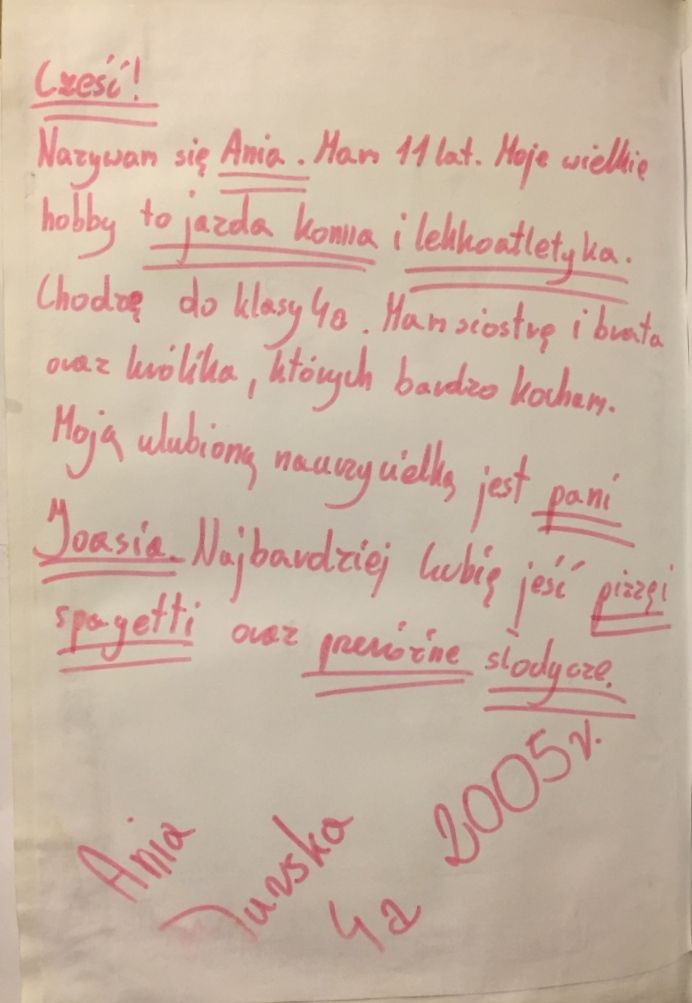 Cześć!
Nazywam się Ania. Mam 11 lat. Moje wielkie
hobby to jazda konna i lekkoatletyka.
Chodzę do klasy 4a. Mam siostrę i brata
oraz królika, których bardzo kocham.
Moją ulubioną nauczycielką jest pani
Joasia. Najbardziej lubię jeść pizzę i
spagetti oraz przeróżne słodycze.
Ania
4a 2005r.